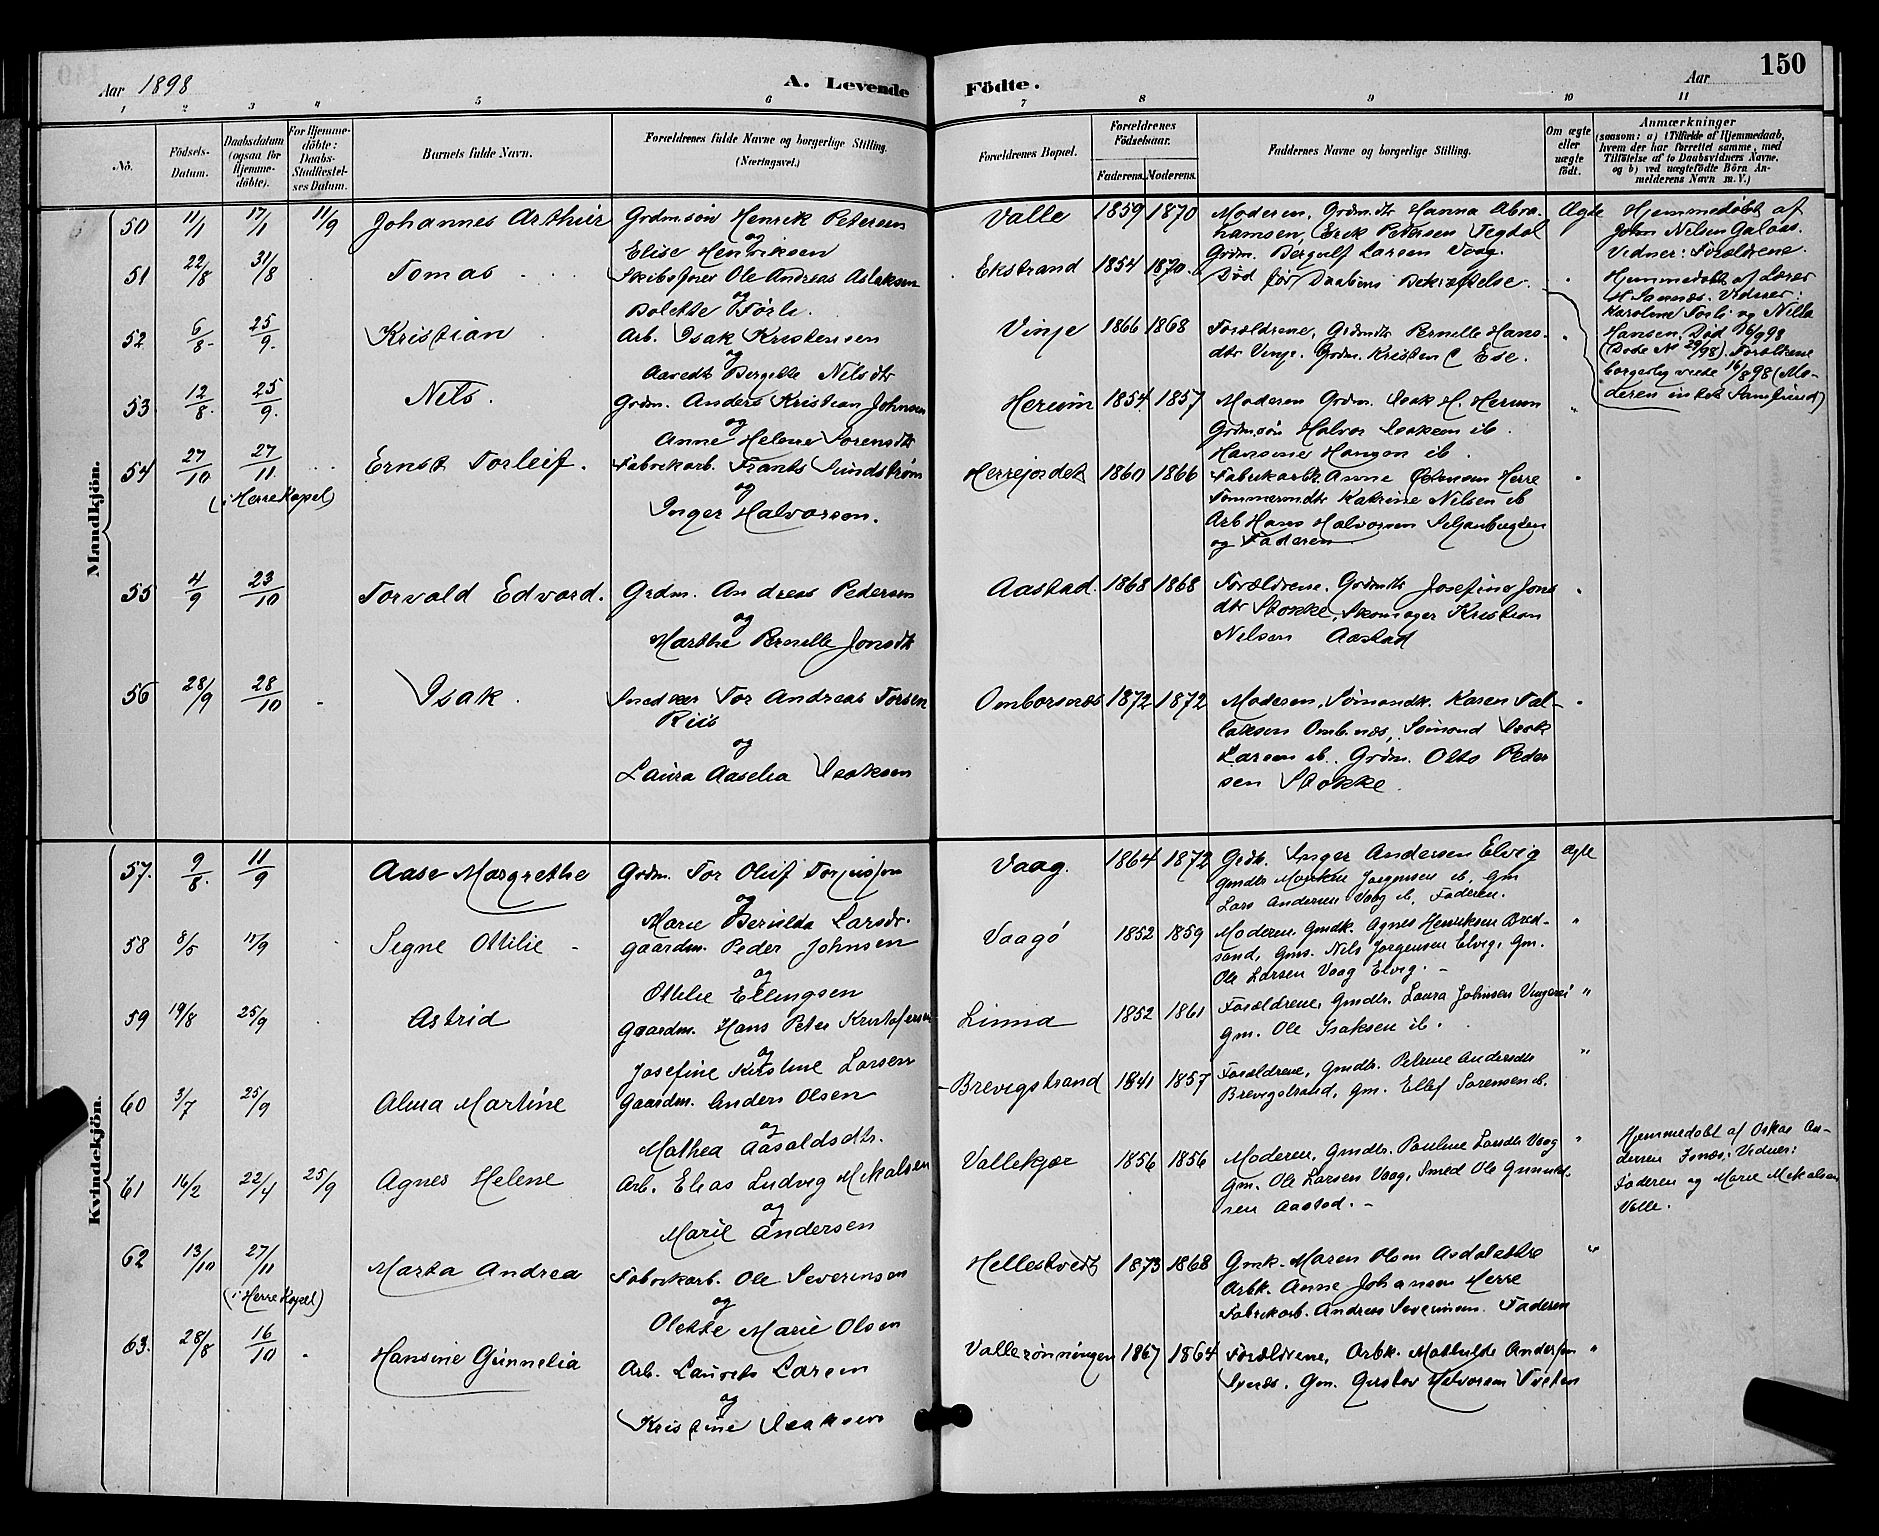 Aar 1898
A. Levende Födte.
Aar
150
1 2 3 4 5 6 7 8 9 10 11
No.
Födsels-
Datum.
Daabsdatum
(ogsaa for
Hjemme-
döbte).
For Hjemme-
döbte:
Daabs-
Stadfæstel-
ses Datum.
Barnets fulde Navn.
Forældrenes fulde Navne og borgerlige Stilling.
(Næringsvei.)
Forældrenes Bopæl.
Forældrenes
Födselsaar.
Faderens. Moderens.
Faddernes Navne og borgerlige Stilling.
Om ægte
eller
uægte
födt.
Anmærkninger
(saasom: a) i Tilfælde af Hjemmedaab,
hvem der har forrettet samme, med
Tilföielse af to Daabsvidners Navne.
og b) ved uægtefödte Börn An-
melderens Navn m. V.)
Mandkjön.
50 11/1 17/1 11/9 Johannes Arthur
Grdmsön Henrik Petersen
og
Elise Henriksen
Valle 1859 1870
Moderen, Grdmdtr Hanna Abra-
hamsen, Erik Petersen Tegdal
Grdm. Bergulf Larsen Vaag.
Ægte
Hjemmedöbt af
John Nilsen Galaas.
Vidner: Forældrene.
51 22/8 31/8 Tomas
Skibsförer Ole Andreas Aslaksen
og
Dolette Førli.
Ekstrand 1854 1870.
Död för Daabens Bekræftelse.
Hjemmedöbt af Lærer
H Sannæs. Vidner:
Karoline Torsli og Nills
Hansen. Död 16/9 98
(Döde No 29/98). Forældrene
borgerlig viede 16/8 98 (Mo-
deren in
52 6/8. 25/9. Kristian
Arb. Isak Kristensen
og
Aavedt Bergitte Nilsdtr
Vinje 1866 1868
Forældrene, Grdmdtr Pernille Hans-
dtr Vinje. Grdm. Kristen C Ese.
53. 12/8. 25/9. Nils.
Grdm. Anders Kristian Johnsen
og
Anne Helene Sorensdtr
Herum 1854 1857
Moderen Grdm. Isak H. Herum
Grdmsön Halvor Isaksen ib.
Hansine Hangen ib.
54 27/10 27/11 Ernst Torleif.
(i Herre Kapel)
Fabrikarb. Frants Lindstrøm
og
Inger Halvorsen.
Herrejordet 1860 1866
Fabrikarbk. Anne Østensen Herre
Tömmermdtr Katrine Nilsen ib
Arb Hans Halvorsen
og Faderen
55 4/9 23/10 Torvald Edvard.
Grdm. Andreas Pedersen
og
Marthe Pernelle Jonsdtr
Aastad. 1868 1868
Forældrene. Grdmdtr Josefine Jons
dtr Stokke, Skomager Kristian
Nilsen Aastad
56 28/9 28/10 Isak.
Snedker Tor Andreas Torsen
Riis
og
Laura Aaselia Isaksen
Omborsnæs 1872 1872
Moderen, Sömandk. Karen Tal-
laksen Ombnæs, Sömand Isak
Larsen ib. Grdm. Olto Peder
sen Stokke.
Kvindekjön.
57. 9/8. 11/9 Aase Margrethe
Grdm. Tor Oluf Torjusson
og
Marie Berulda Larsdr.
Vaag. 1864 1872
Grdk. Inger Andersen Elvig
Gmdtr Jorgensen ib, Gm
Lars Andersen Vaag ib, Faderen.
ægte
58 8/5 11/9 Signe Ottilie
Gaardm. Peder Johnsen
og
Ottilie Ellingsen
Vaagö 1852 1859
Moderen, Gmdk. Agnes Henriksen Bred-
sand, Gms. Nils Jorgensen Elvig, Gm.
Ole Larsen Vaag Elvig.
"
59 19/8 25/9 Astrid
Gaardm. Hans Peter Kristofersen
og
Josefine Kirstine Larsen
Linna 1852 1861
Forældrene, Gmdtr. Laura Johnsen
Gm. Ole Isaksen ib.
"
60 3/7 25/9 Alma Martine
Gaardm. Anders Olsen
og
Mathea Aasoldsdtr.
Brevigstrand 1841 1857
Forældrene, Gmdtr. Petrine Andersdtr
Brevigstrand, Gm. Ellef Sorensen ib.
"
61 16/2 22/4 25/9 Agnes Helene
Arb. Elias Ludvig Mikalsen
og
Marie Andersen
Vallekjær 1856 1856
Moderen, Gmdtr. Pauline Larsdtr Vaag
Gm. Ole Larsen Vaag, Smed Ole Gunuld-
sen Aastad.
"
Hjemmedobt af Oskar An-
dersen Vidner:
Faderen og Marie Mikalsen
Valle.
62 13/10 27/11 Marta Andrea
(i Herre Kapel)
Fabrikarb. Ole Severinsen
og
Olette Marie Olsen
Hellestvedt 1873 1868
Gmk. Maren Olsen
Arbk. Anne Johansen Herre
Fabrikarb. Andreas Severinsen. Faderen
"
63. 28/8 16/10 Hansine Gunnelia
Arb. Laurits Larsen
og
Kristine Isaksen
Vallerönningen 1867 1864
Forældrene, Arbk. Mathilde Anderson
Gm. Gustav Halvorsen Tveten
"